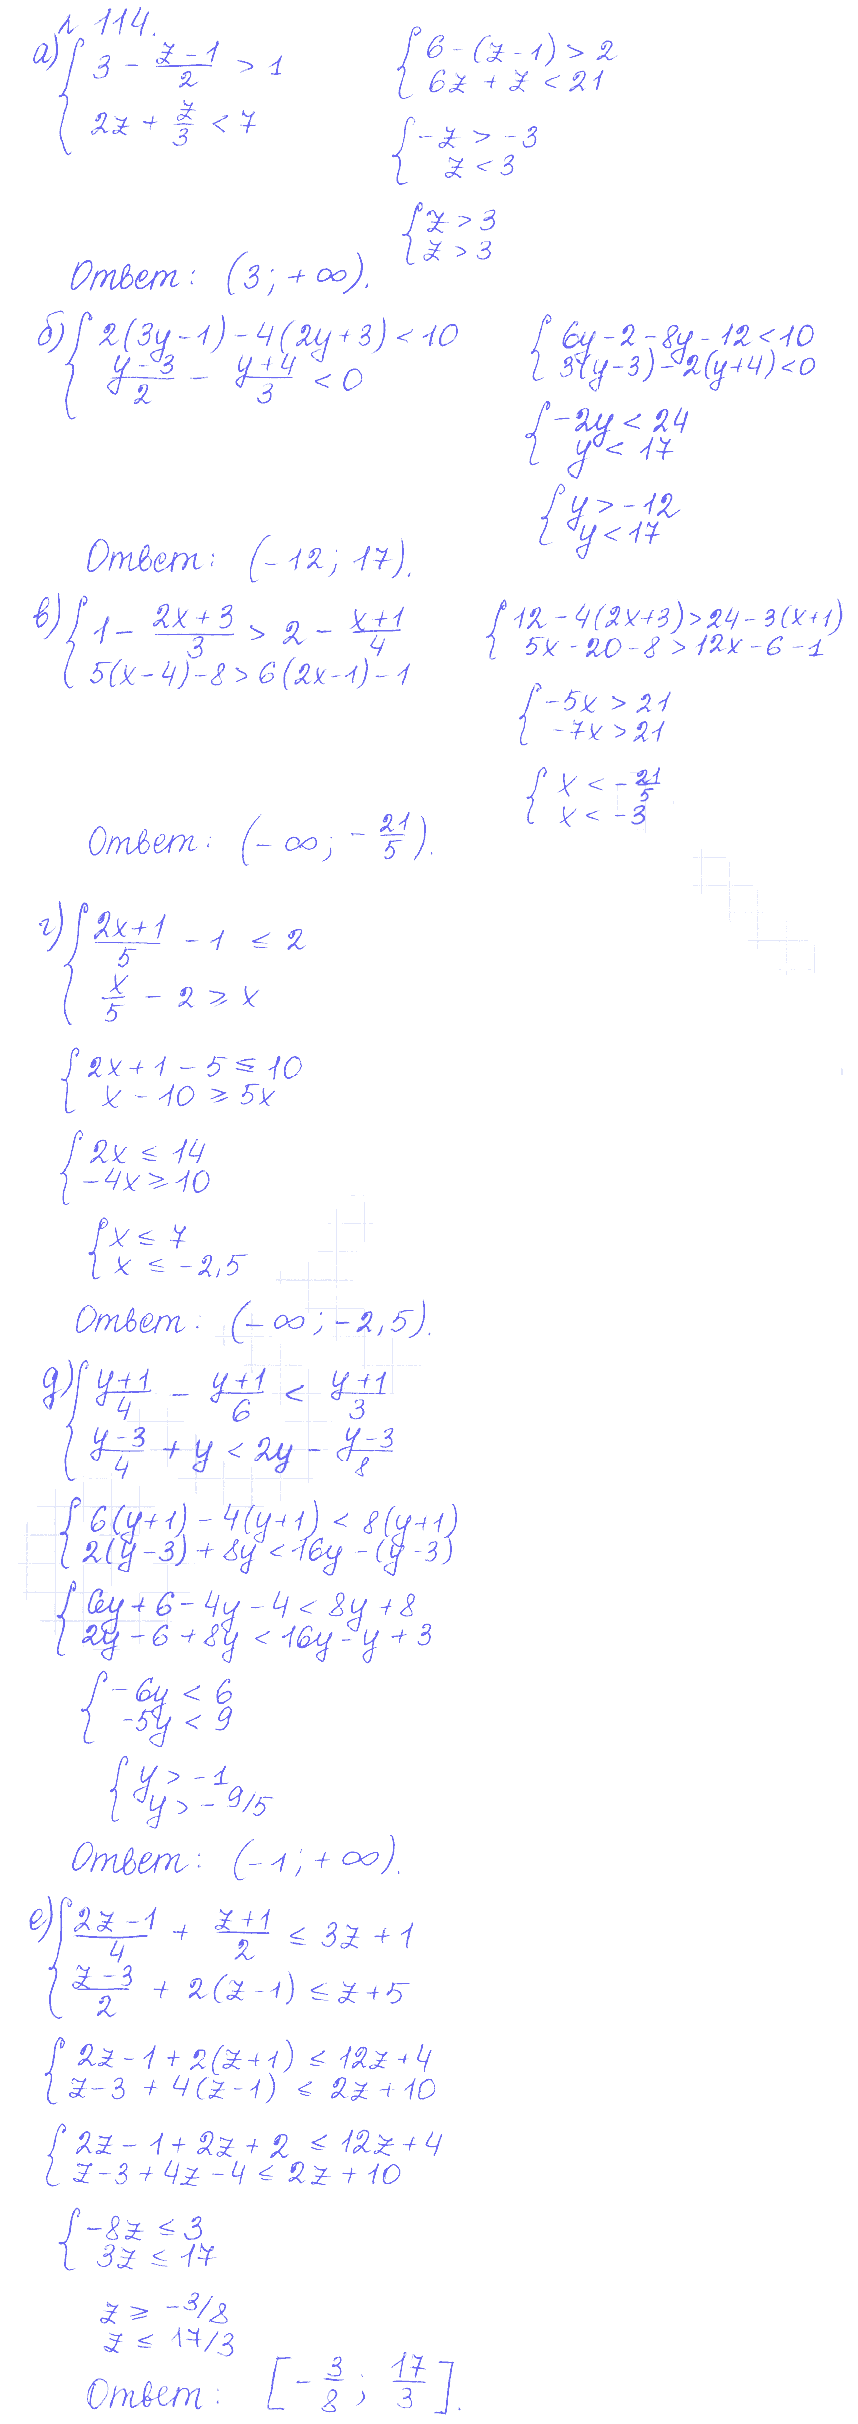 н. 114.
а) { 3 - (z-1)/2 > 1
2z + z/3 < 7
{ 6 - (z-1) > 2
6z + z < 21
{ -z > -3
z < 3
{ z > 3
z > 3
Ответ: (3; +∞).
б) { 2(3y-1) - 4(2y+3) < 10
(y-3)/2 - (y+4)/3 < 0
{ 6y - 2 - 8y - 12 < 10
3(y-3) - 2(y+4) < 0
{ -2y < 24
y < 17
{ y > -12
y < 17
Ответ: (-12; 17).
в) { 1 - (2x+3)/3 > 2 - (x+1)/4
5(x-4) - 8 > 6(2x-1) - 1
{ 12 - 4(2x+3) > 24 - 3(x+1)
5x - 20 - 8 > 12x - 6 - 1
{ -5x > 21
-7x > 21
{ x < -21/5
x < -3
Ответ: (-∞; -21/5).
г) { (2x+1)/5 - 1 ≤ 2
x/5 - 2 ≥ x
{ 2x + 1 - 5 ≤ 10
x - 10 ≥ 5x
{ 2x ≤ 14
-4x ≥ 10
{ x ≤ 7
x ≤ -2,5
Ответ: (-∞; -2,5).
д) { (y+1)/4 - (y+1)/6 < (y+1)/3
(y-3)/4 + y < 2y - (y-3)/8
{ 6(y+1) - 4(y+1) < 8(y+1)
2(y-3) + 8y < 16y - (y-3)
{ 6y + 6 - 4y - 4 < 8y + 8
2y - 6 + 8y < 16y - y + 3
{ -6y < 6
-5y < 9
{ y > -1
y > -9/5
Ответ: (-1; +∞).
е) { (2z-1)/4 + (z+1)/2 ≤ 3z + 1
(z-3)/2 + 2(z-1) ≤ z + 5
{ 2z - 1 + 2(z+1) ≤ 12z + 4
z - 3 + 4(z-1) ≤ 2z + 10
{ 2z - 1 + 2z + 2 ≤ 12z + 4
z - 3 + 4z - 4 ≤ 2z + 10
{ -8z ≤ 3
3z ≤ 17
z ≥ -3/8
z ≤ 17/3
Ответ: [-3/8; 17/3].